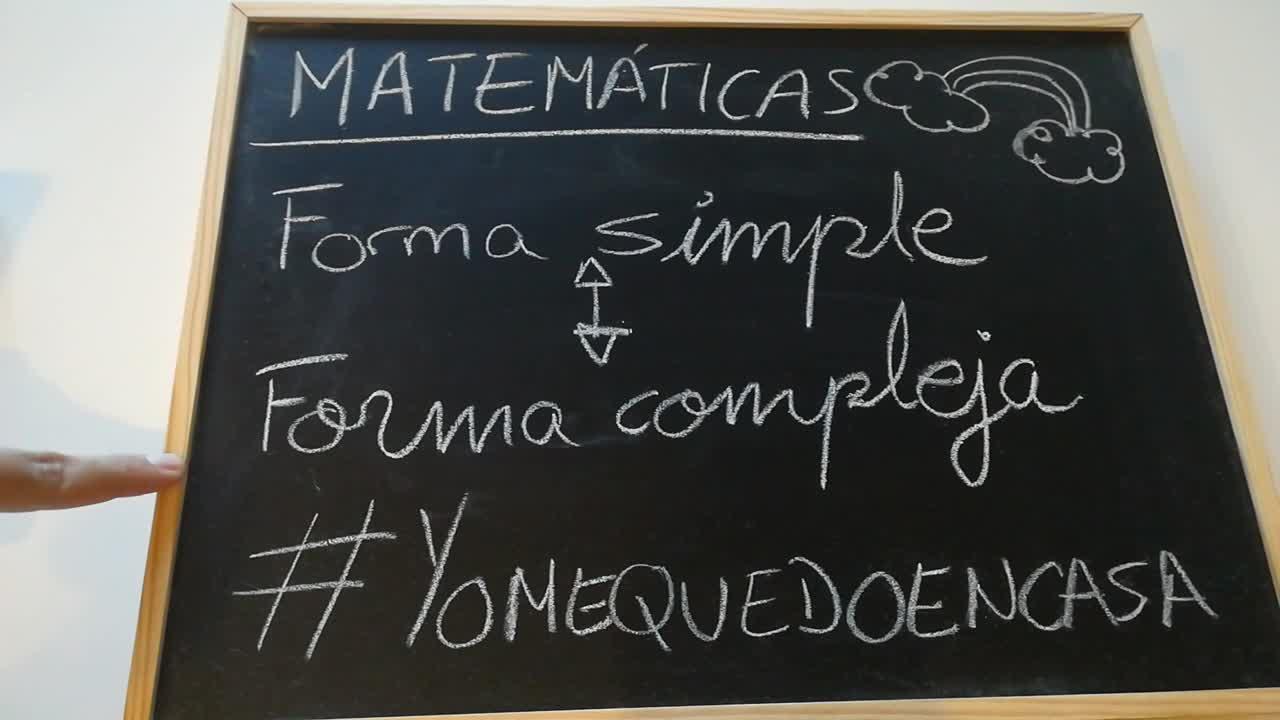 MATEMÁTICAS
Forma simple
Forma compleja
#YOMEQUEDOENCASA